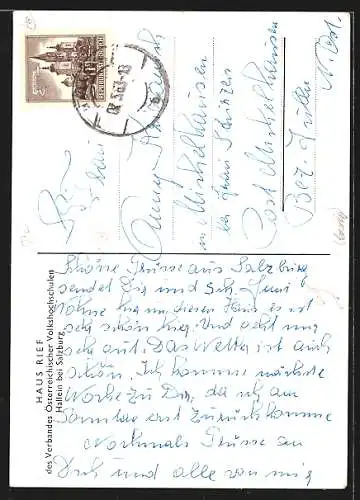 HAUS RIEF
des Verbandes Österreichischer Volkshochschulen
Hallein bei Salzburg
REPUBLIK ÖSTERREICH
Frau
in Michelhausen
bei Frau
Post Michelhausen
Bez. Tulln
N. Öst.
Schöne Grüsse aus Salzburg
sendet Dir und
wohne hier in diesen Haus, es ist
sehr schön hier. Und geht mir
sehr gut. Das Wetter ist auch
schön. Ich komme nächste
Woche zu Dir, da ich am
Sonntag erst zurückkomme
Nochmals Grüsse an
Dich und alle von mir